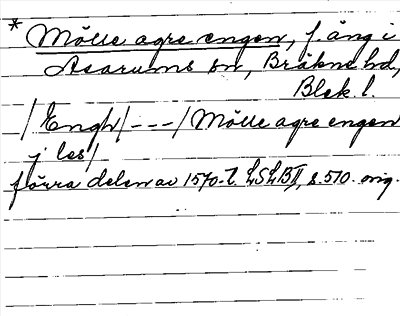 * Mölle agre engen, f äng i
Asarums sn, Bräkne hd,
Blek. l.
/Engh/---/Mölle agre engen
j les/
förra delen av 1570-t. LSLBII, s. 510. orig.